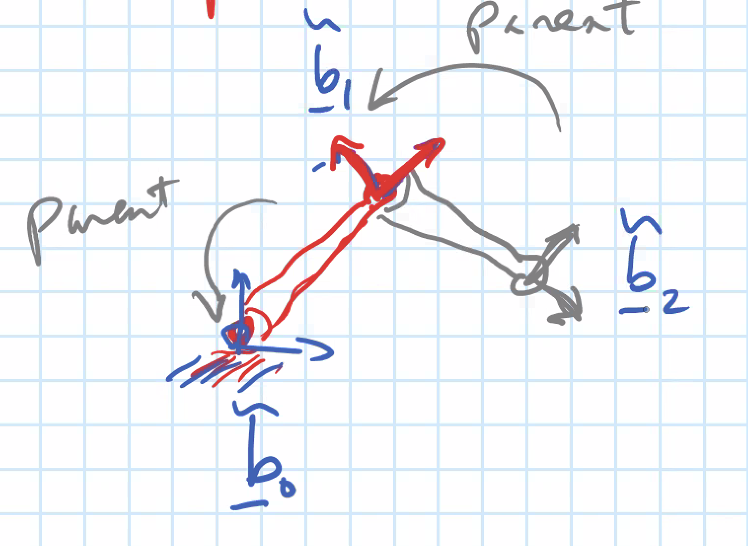 parent
b̲̃₁
parent
b̲̃₂
b̲̃₀